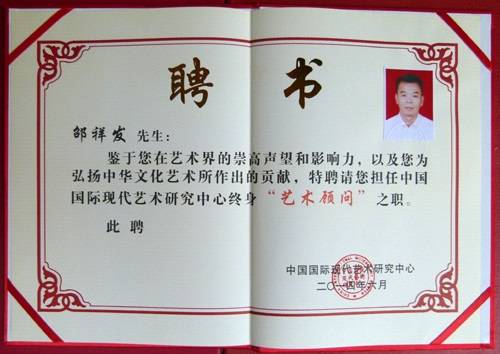 聘 书
邹祥发 先生:
鉴于您在艺术界的崇高声望和影响力,以及您为
弘扬中华文化艺术所作出的贡献,特聘请您担任中国
国际现代艺术研究中心终身“艺术顾问”之职。
此 聘
中国国际现代艺术研究中心
二〇一四年六月